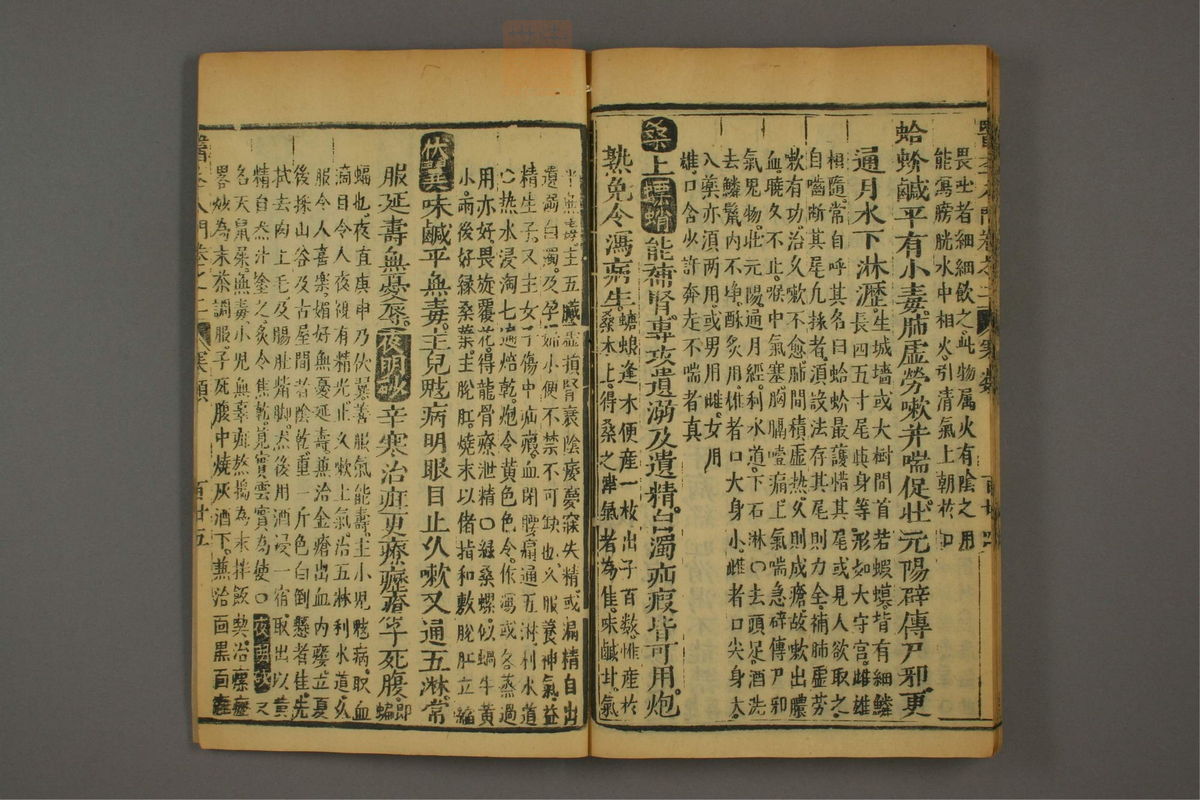 畏吐者細細飲之此物属火有陰之用
能瀉膀胱水中相火引清氣上朝於口
蛤蚧鹹平有小毒肺虛勞嗽并喘促壯元陽辟傳尸邪更
通月水下淋瀝生城墻或大樹間首若蝦蟆背有細鱗
長四五寸尾與身等形如大守宮雌雄
相隨常自呼其名曰蛤蚧最護惜其尾或見人欲取之
自嚙断其尾凡採者須設法存其尾則力全補肺虛劳
嗽有功治久嗽不愈肺間積虛熱久則成瘡故嗽出膿
血曉久不止喉中氣塞胸膈噎痛上氣喘急辟傳尸邪
氣鬼物壯元陽通月經利水道下石淋○去頭足酒洗
去鱗鬣内不净酥炙用雄者口大身小雌者口尖身大
入藥亦須两用或男用雌女用
雄口含少許奔走不喘者真
桑上螵蛸能補腎專攻遺溺及遺精白濁疝瘕皆可用炮
熟免令瀉病生螗蜋逢木便産一枚出子百数惟産於
桑木上得桑之津氣者為佳味鹹甘氣
平無毒主五臟虛損腎衰陰痿夢寐失精或漏精自出
遺溺白濁及孕婦小便不禁不可缺也久服養神氣益
精生子又主女子傷中疝瘕血閉腰痛通五淋利水道
○热水浸淘七遍焙乾炮令黄色色令作瀉或各蒸過
用亦好畏旋覆花得龍骨療泄精○緑桑螺似蝸牛黄
小雨後好緑桑葉主脫肛燒末以偖指和敷脫肛立縮
伏翼味鹹平無毒主兒魃病明眼目止久嗽又通五淋常
服延壽無憂辱夜明砂辛寒治疰更療瘰癧子死腹即蝙
蝠也夜直庚申乃伏翼善服氣能壽主小児魃病取血
滴目令人夜視有精光止久嗽上氣治五淋利水道久
服令人喜樂媚好無憂延壽兼治金瘡出血内痿立夏
後採山谷及古屋間者陰乾重一斤色白倒懸者佳先
拭去肉上毛及腸肚觜脚炙後用酒浸一宿取出以黄
精自然汁塗之炙令焦乾莧實雲實為使○夜明砂又
名天鼠屎無毒小児無辜疳熬擣為末拌飯喫治瘰癧
畧炒為末茶調服子死腹中燒灰酒下兼治面黒面皯